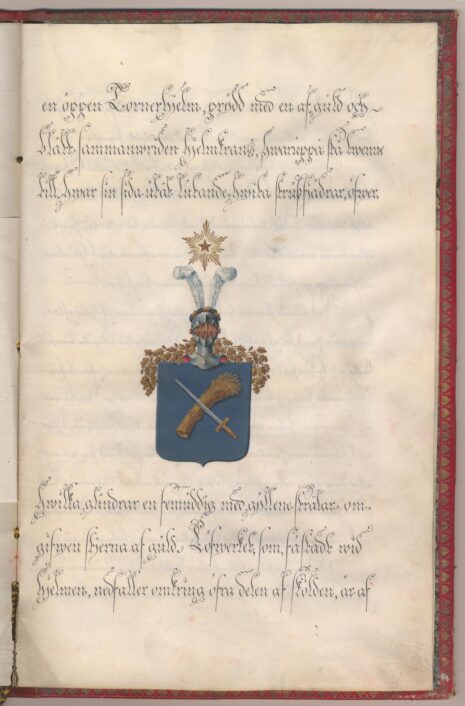 en öppen Tornerhjelm, prydd med en af guld och
blått sammanwriden hjelmkrans, hwaruppå stå twenne
till hwar sin sida utåt lutande hwita strutsfjädrar, öfwer
hwilka glindrar en femuddig med gyllene strålar om-
gifwen stjerna af guld. Löfwerket, som, fästadt wid
hjelmen, nedfaller omkring öfra delen af skölden, är af